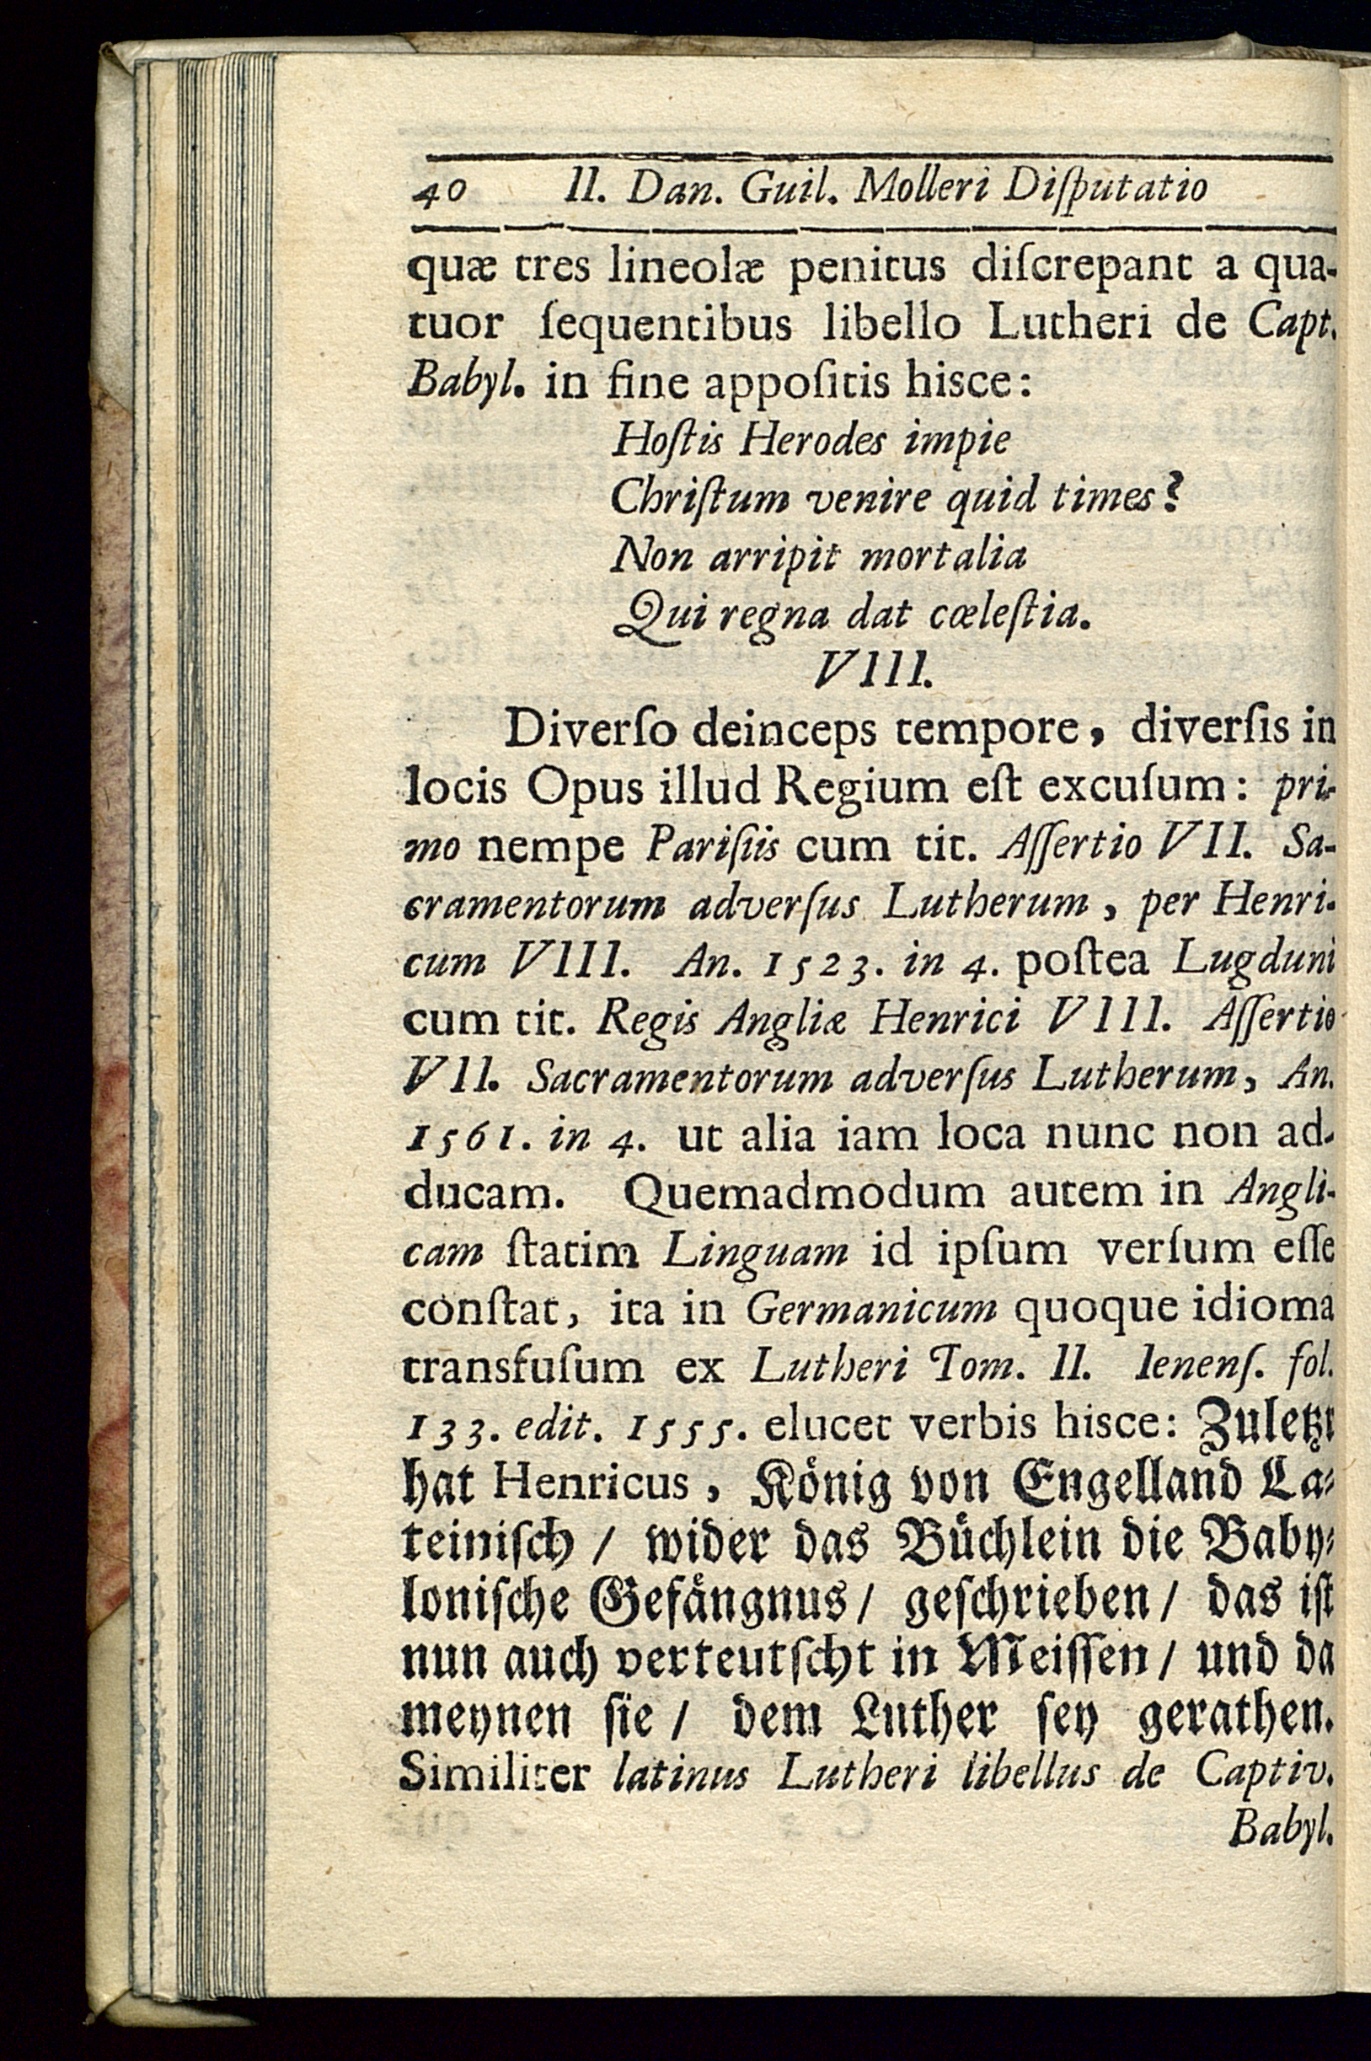 40 II. Dan. Guil. Molleri Diſputatio
quæ tres lineolæ penitus diſcrepant a qua-
tuor ſequentibus libello Lutheri de Capt.
Babyl. in fine appoſitis hisce:
Hoſtis Herodes impie
Chriſtum venire quid times?
Non arripit mortalia
Qui regna dat cœleſtia.
VIII.
Diverſo deinceps tempore, diverſis in
locis Opus illud Regium eſt excuſum: pri-
mo nempe Pariſiis cum tit. Aſſertio VII. Sa-
cramentorum adverſus Lutherum, per Henri-
cum VIII. An. 1523. in 4. poſtea Lugduni
cum tit. Regis Angliæ Henrici VIII. Aſſertio
VII. Sacramentorum adverſus Lutherum, An.
1561. in 4. ut alia iam loca nunc non ad-
ducam. Quemadmodum autem in Angli-
cam ſtatim Linguam id ipſum verſum eſſe
conſtat, ita in Germanicum quoque idioma
transfuſum ex Lutheri Tom. II. Ienenſ. fol.
133. edit. 1555. elucet verbis hisce: Zuletzt
hat Henricus, König von Engelland La-
teiniſch / wider das Büchlein die Baby-
loniſche Gefängnus / geſchrieben / das iſt
nun auch verteutſcht in Meiſſen / und da
meynen ſie / dem Luther ſey gerathen.
Similiter latinus Lutheri libellus de Captiv.
Babyl.